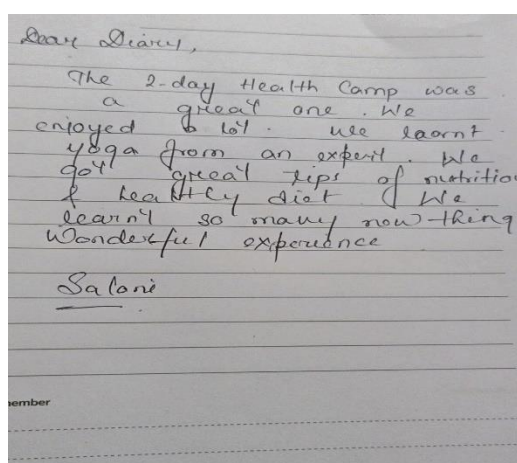 Dear Diary,
The 2-day Health Camp was
a great one. We
enjoyed a lot. We learnt
yoga from an expert. We
got great tips of nutritio
& healthy diet. We
learnt so many new thing
Wonderful experience
Saloni
nember